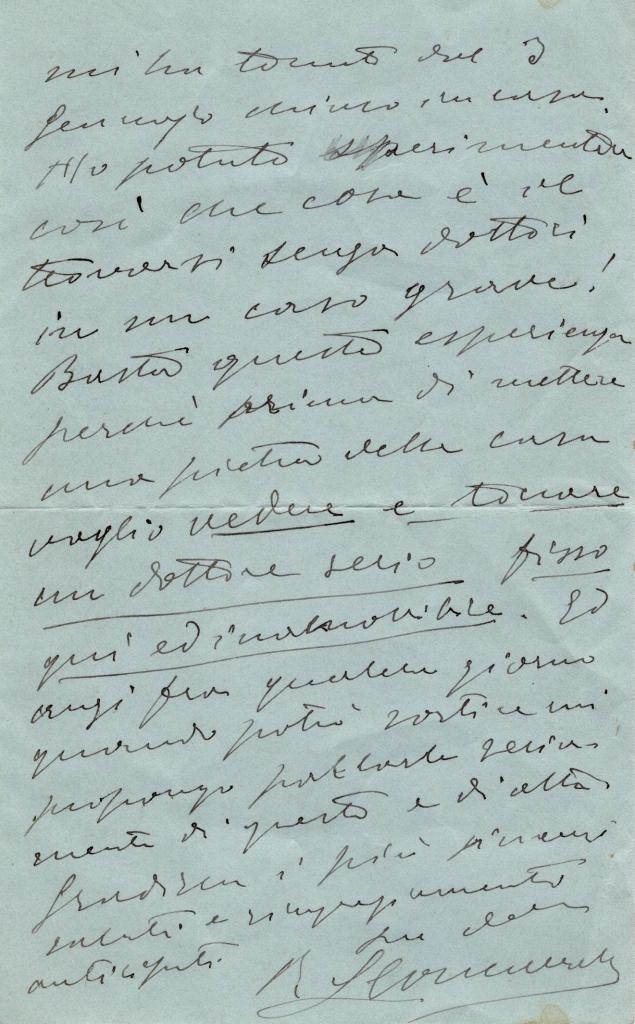 mi ha tenuto dal 3
Gennajo chiuso in casa.
Ho potuto sperimentare
così che cosa è il
trovarsi senza dottori
in un caso grave!
Basta questa esperienza
perchè prima di mettere
una pietra della casa
voglio vedere e toccare
un dottore serio fisso
qui ed inamovibile. Ed
anzi fra qualche giorno
quando potrò sortire mi
propongo parlarle seria-
mente di questo e di altro.
Gradisca i più sinceri
saluti e ringraziamento
anticipati.
R